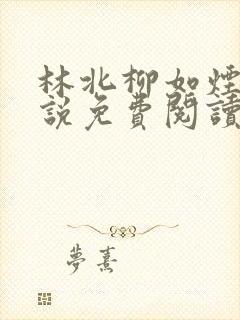 林北柳如煙
説免費閱讀
夢熹